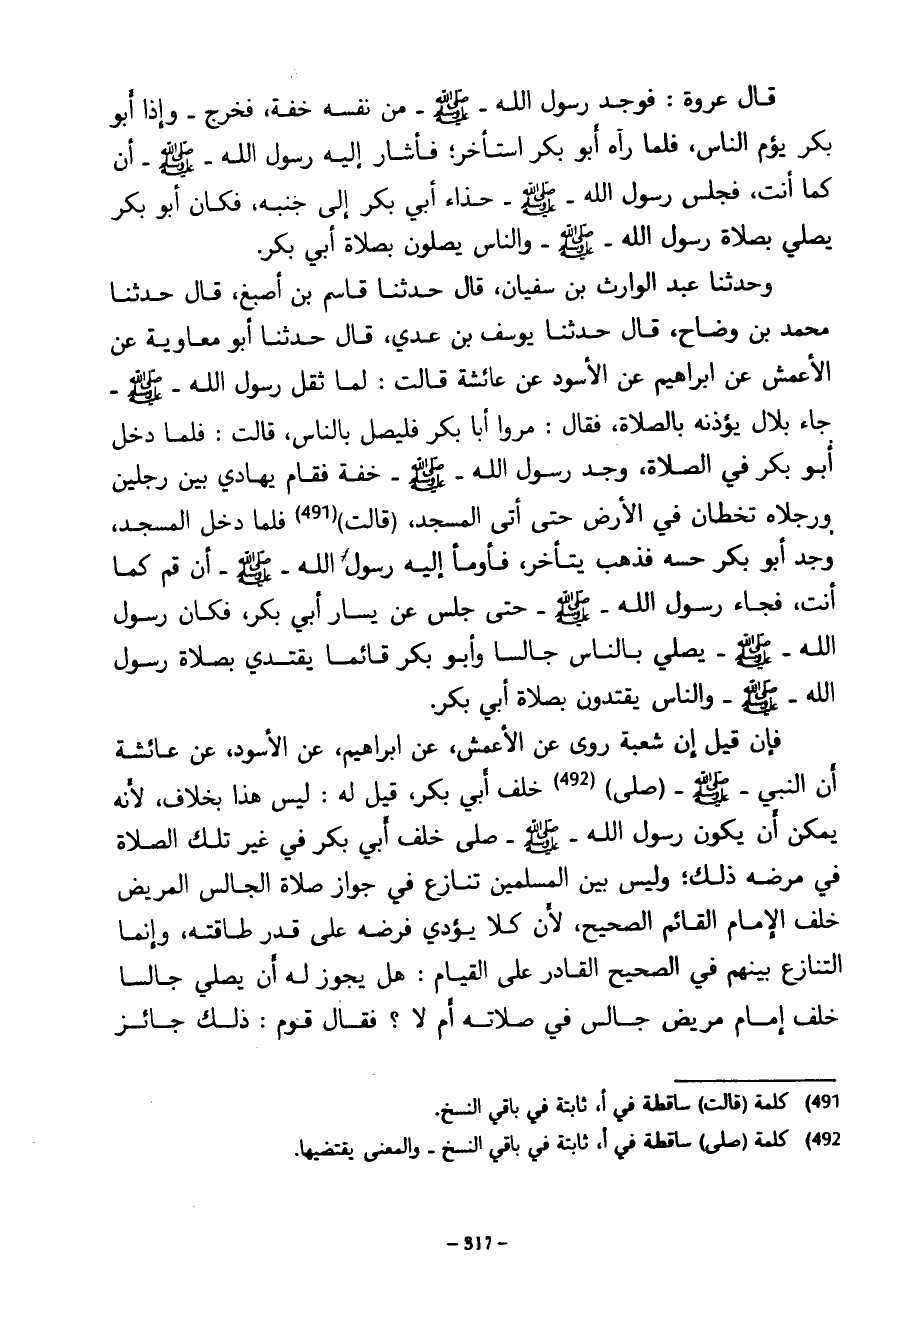 قال عروة : فوجد رسول الله ـ ﷺ ـ من نفسه خفة، فخرج ـ وإذا أبو
بكر يؤم الناس، فلما رآه أبو بكر استأخر؛ فأشار إليه رسول الله ـ ﷺ ـ أن
كما أنت، فجلس رسول الله ـ ﷺ ـ حذاء أبي بكر إلى جنبه، فكان أبو بكر
يصلي بصلاة رسول الله ـ ﷺ ـ والناس يصلون بصلاة أبي بكر.
وحدثنا عبد الوارث بن سفيان، قال حدثنا قاسم بن أصبغ، قال حدثنا
محمد بن وضاح، قال حدثنا يوسف بن عدي، قال حدثنا أبو معاوية عن
الأعمش عن ابراهيم عن الأسود عن عائشة قالت : لما ثقل رسول الله ـ ﷺ ـ
جاء بلال يؤذنه بالصلاة، فقال : مروا أبا بكر فليصل بالناس، قالت : فلما دخل
أبو بكر في الصلاة، وجد رسول الله ـ ﷺ ـ خفة فقام يهادي بين رجلين
ورجلاه تخطان في الأرض حتى أتى المسجد، (قالت)(491) فلما دخل المسجد،
وجد أبو بكر حسه فذهب يتأخر، فأومأ إليه رسول الله ـ ﷺ ـ أن قم كما
أنت، فجاء رسول الله ـ ﷺ ـ حتى جلس عن يسار أبي بكر، فكان رسول
الله ـ ﷺ ـ يصلي بالناس جالسا وأبو بكر قائما يقتدي بصلاة رسول
الله ـ ﷺ ـ والناس يقتدون بصلاة أبي بكر.
فإن قيل إن شعبة روى عن الأعمش، عن ابراهيم، عن الأسود، عن عائشة
أن النبي ـ ﷺ ـ (صلى) (492) خلف أبي بكر، قيل له : ليس هذا بخلاف، لأنه
يمكن أن يكون رسول الله ـ ﷺ ـ صلى خلف أبي بكر في غير تلك الصلاة
في مرضه ذلك؛ وليس بين المسلمين تنازع في جواز صلاة الجالس المريض
خلف الإمام القائم الصحيح، لأن كلا يؤدي فرضه على قدر طاقته، وإنما
التنازع بينهم في الصحيح القادر على القيام : هل يجوز له أن يصلي جالسا
خلف إمام مريض جالس في صلاته أم لا ؟ فقال قوم : ذلك جائز
491) كلمة (قالت) ساقطة في أ، ثابتة في باقي النسخ.
492) كلمة (صلى) ساقطة في أ، ثابتة في باقي النسخ ـ والمعنى يقتضيها.
– 317 –